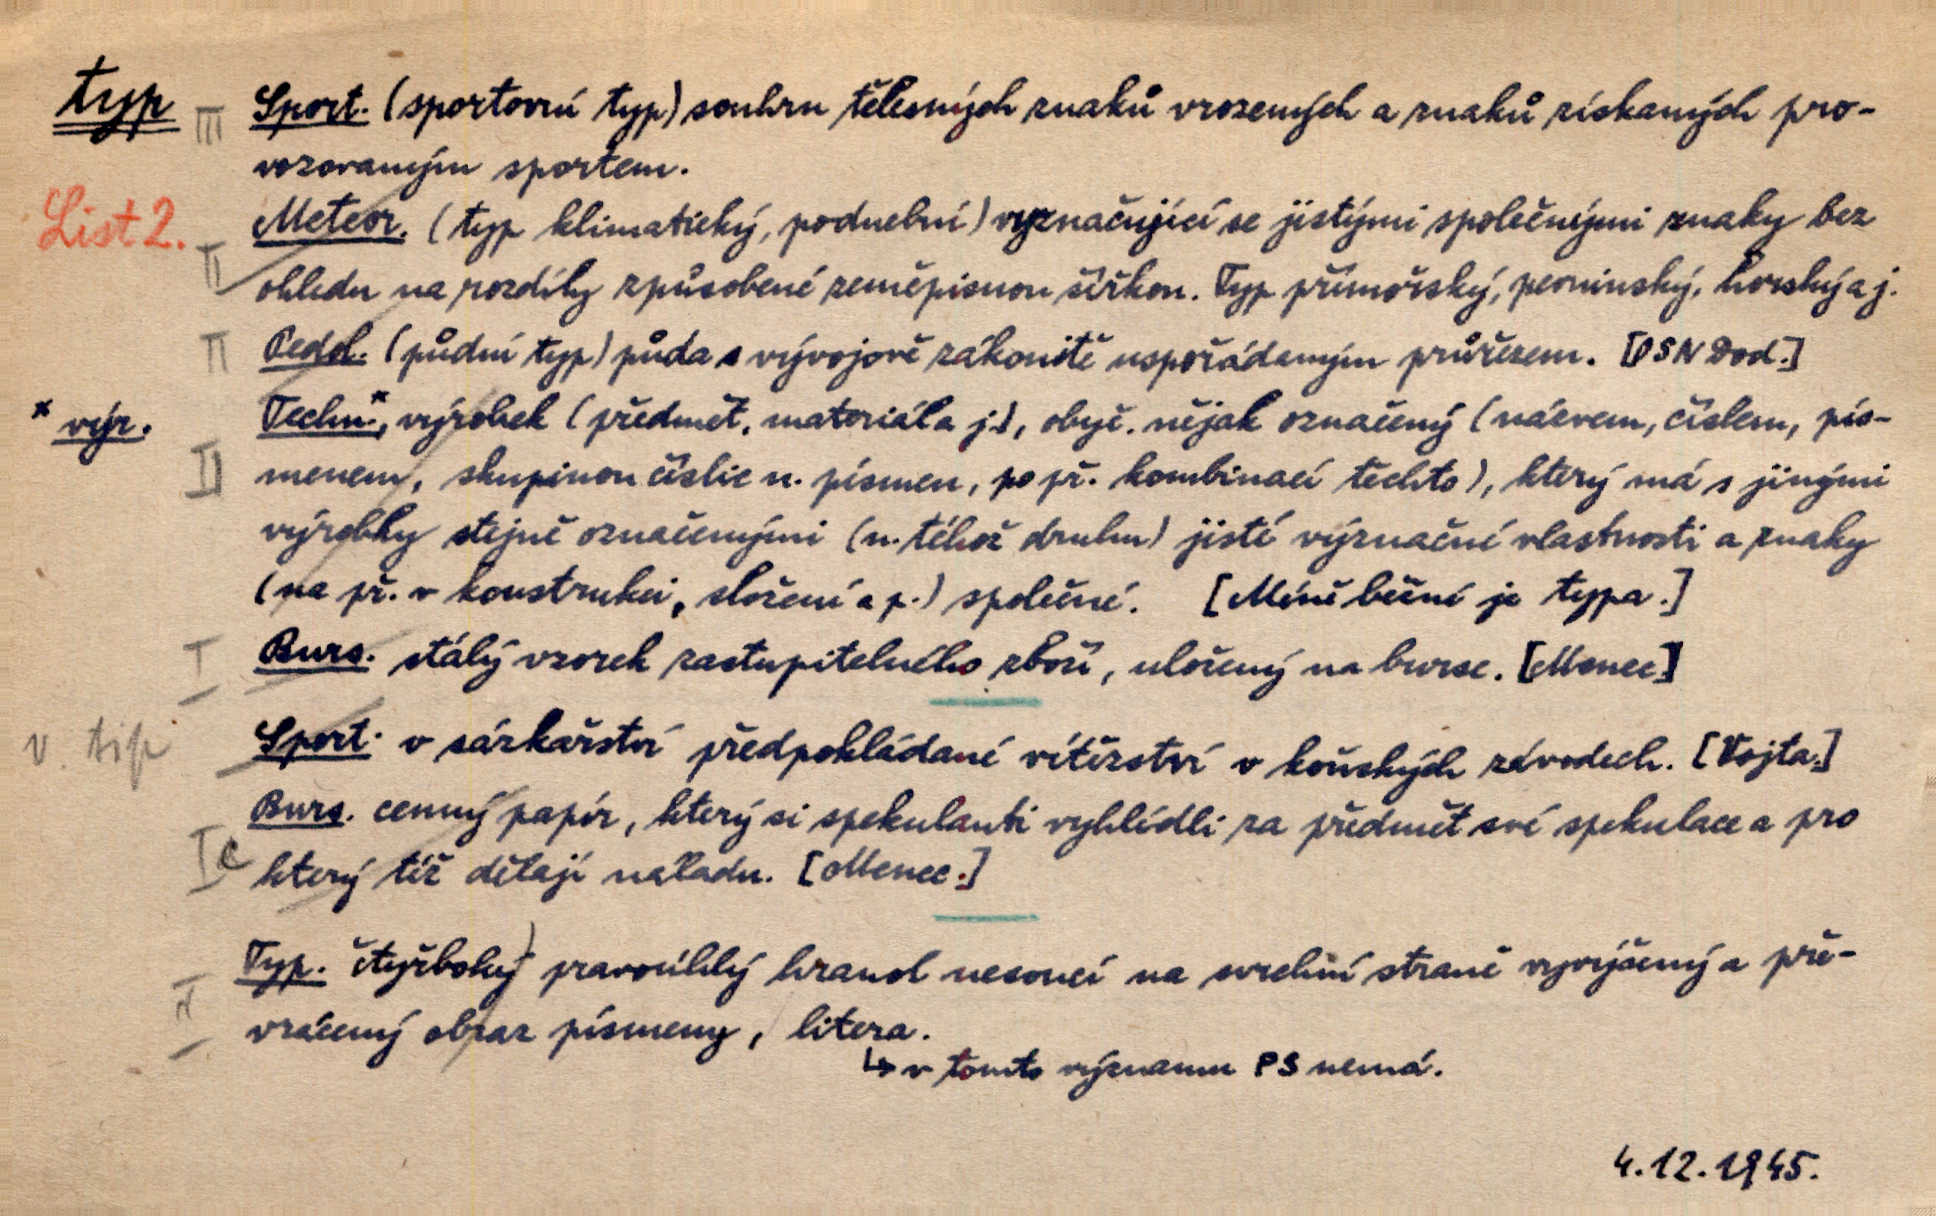 typ III Sport. (sportovní typ) souhrn tělesných znaků vrozených a znaků získaných pro-
vozovaným sportem.
List 2. II Meteor. (typ klimatický, podnební) vyznačující se jistými společnými znaky bez
ohledu na rozdíly způsobené zeměpisnou šířkou. Typ přímořský, pevninský, horský a j.
II Pedol. (půdní typ) půda s vývojově zákonitě uspořádaným průřezem. [PSN Dod.]
* výr. Techn.*, výrobek (předmět, materiál a j.), obyč. nějak označený (názvem, číslem, pís-
II menem, skupinou číslic n. písmen, po př. kombinací těchto), který má s jinými
výrobky stejně označenými (n. téhož druhu) jisté význačné vlastnosti a znaky
(na př. v konstrukci, složení a p.) společné. [Méně běžné je typa.]
I Burs. stálý vzorek zastupitelného zboží, uložený na burse. [Menec]
v. tip Sport. v sázkařství předpokládané vítězství v koňských závodech. [Vojta.]
Burs. cenný papír, který si spekulanti vyhlédli za předmět své spekulace a pro
I c který též dělají náladu. [Menec.]
Typ. čtyřboký pravoúhlý hranol nesoucí na svrchní straně vyvýšený a pře-
II vrácený obraz písmeny, litera.
↳ v tomto významu PS nemá.
4.12.1945.